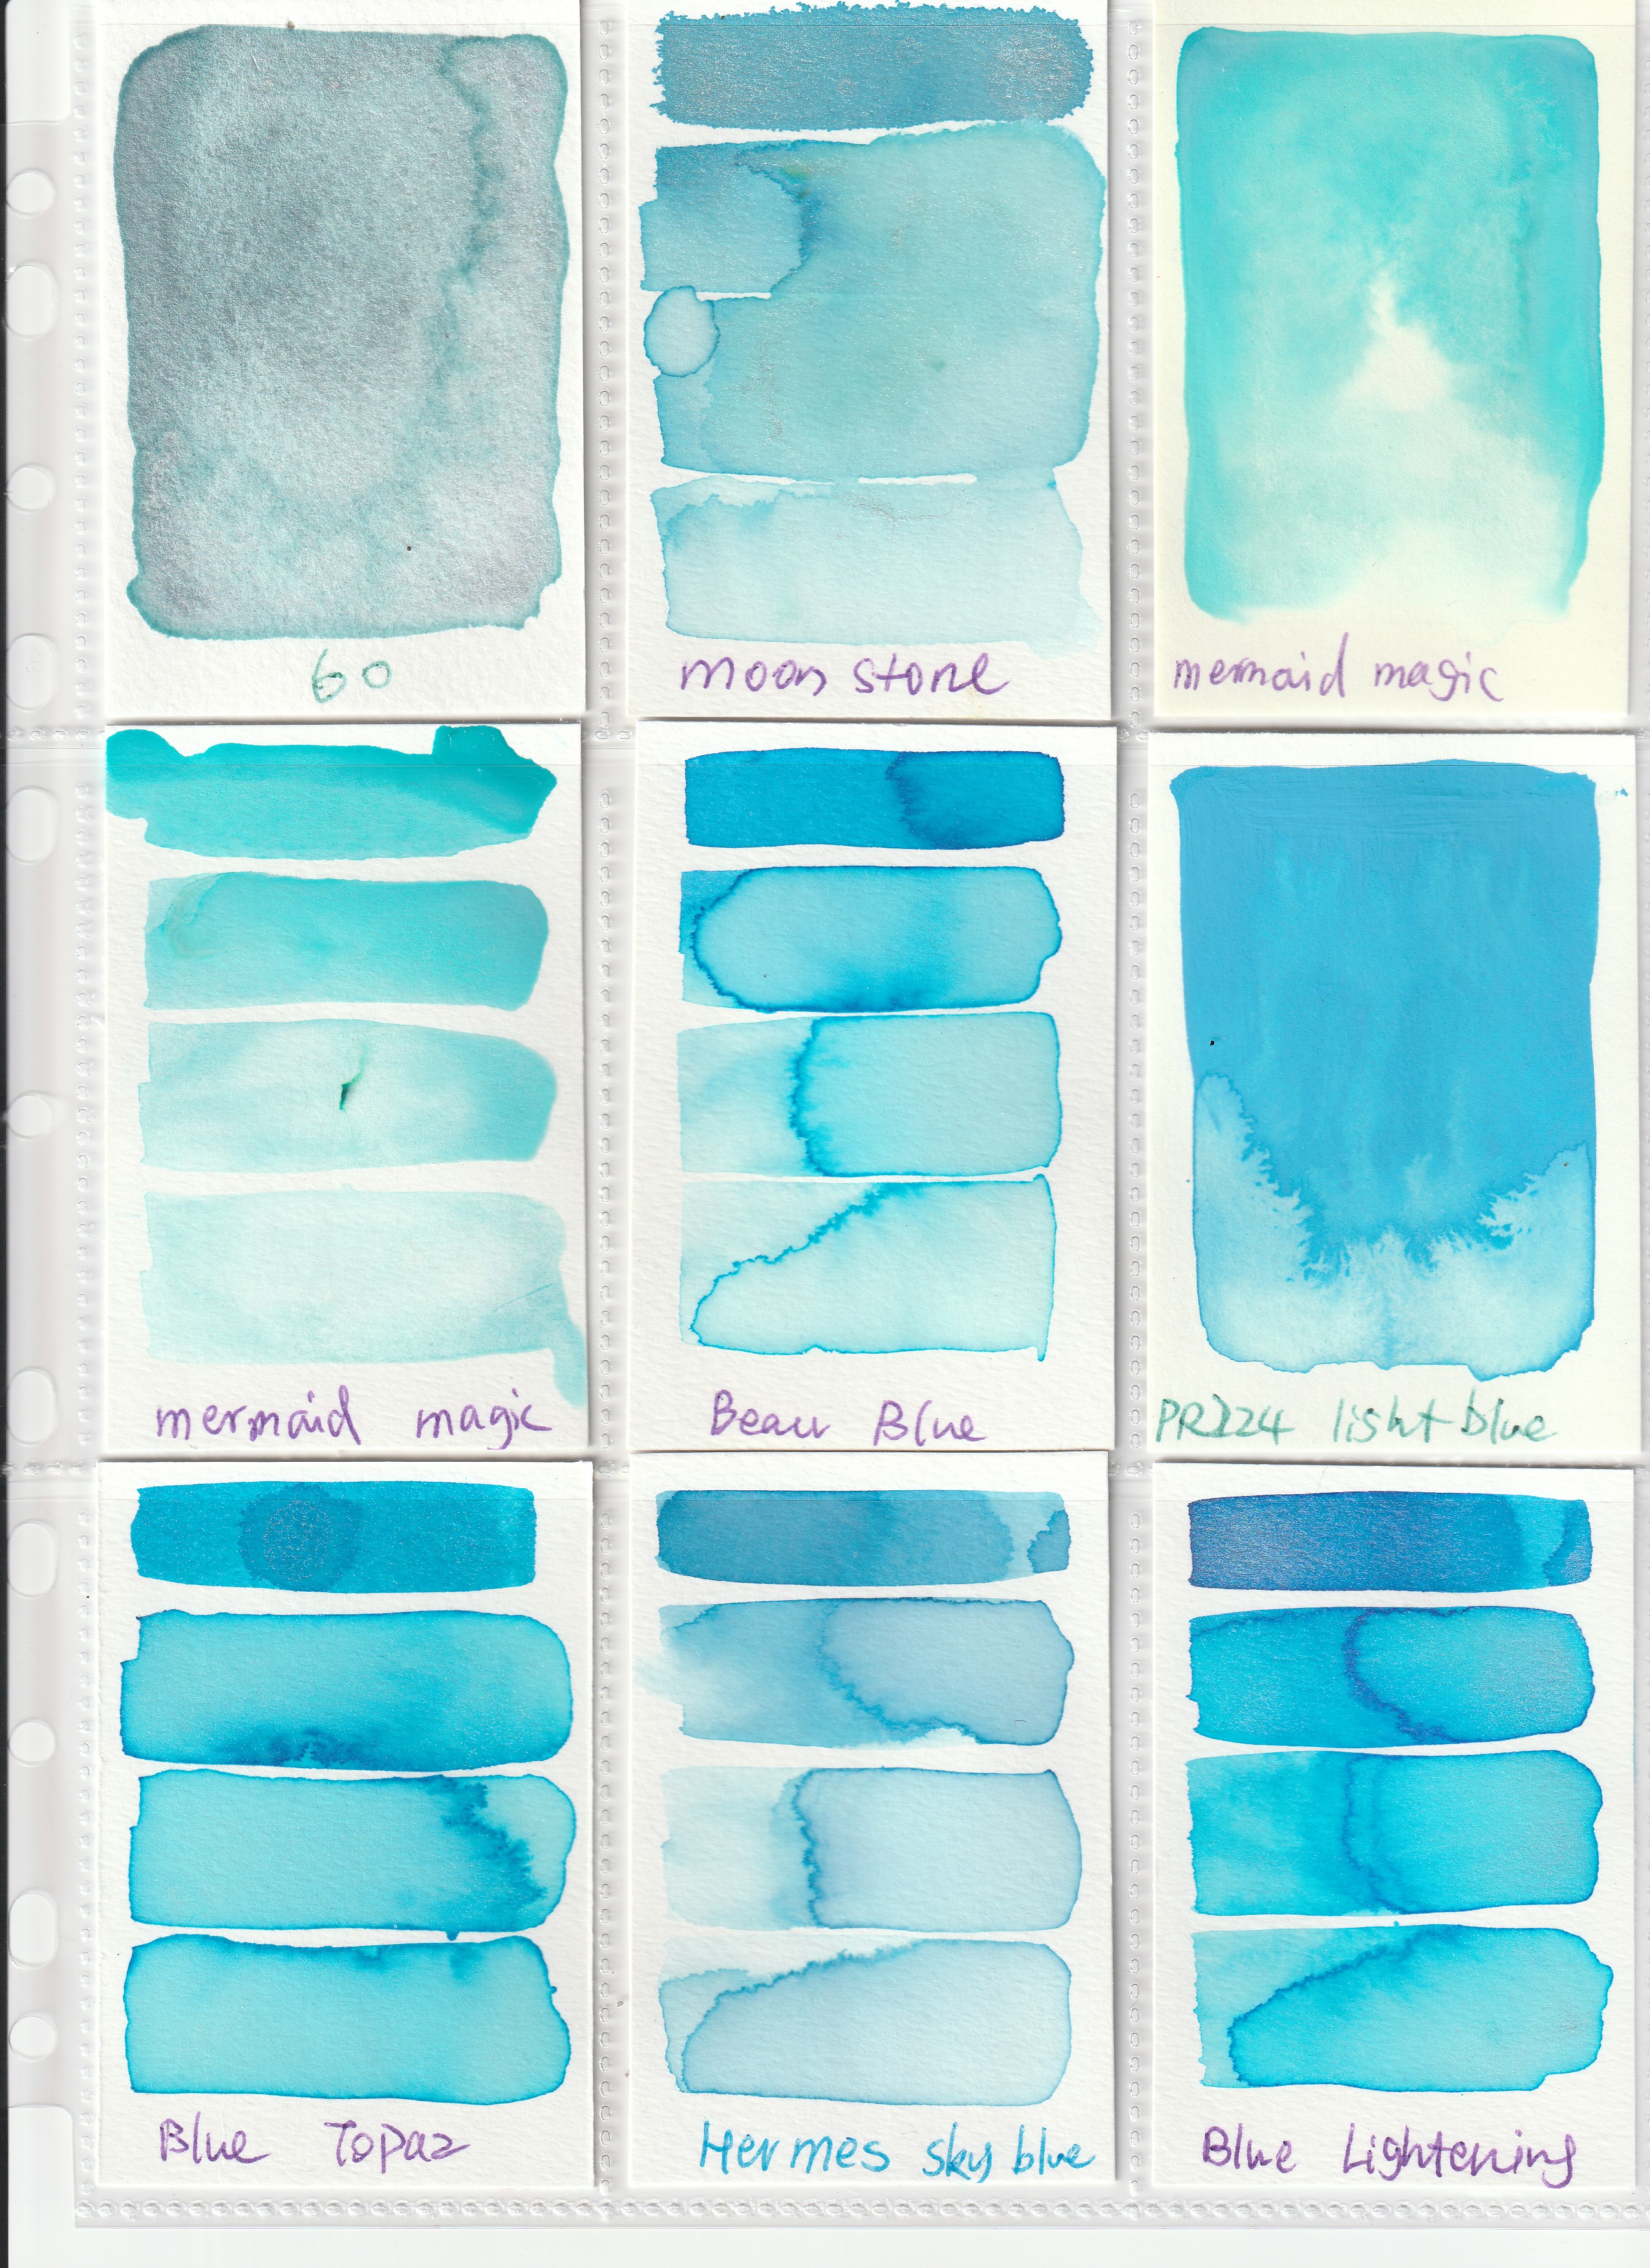 60
moon stone
mermaid magic
mermaid magic
Beau Blue
PR224 light blue
Blue Topaz
Hermes sky blue
Blue Lightening